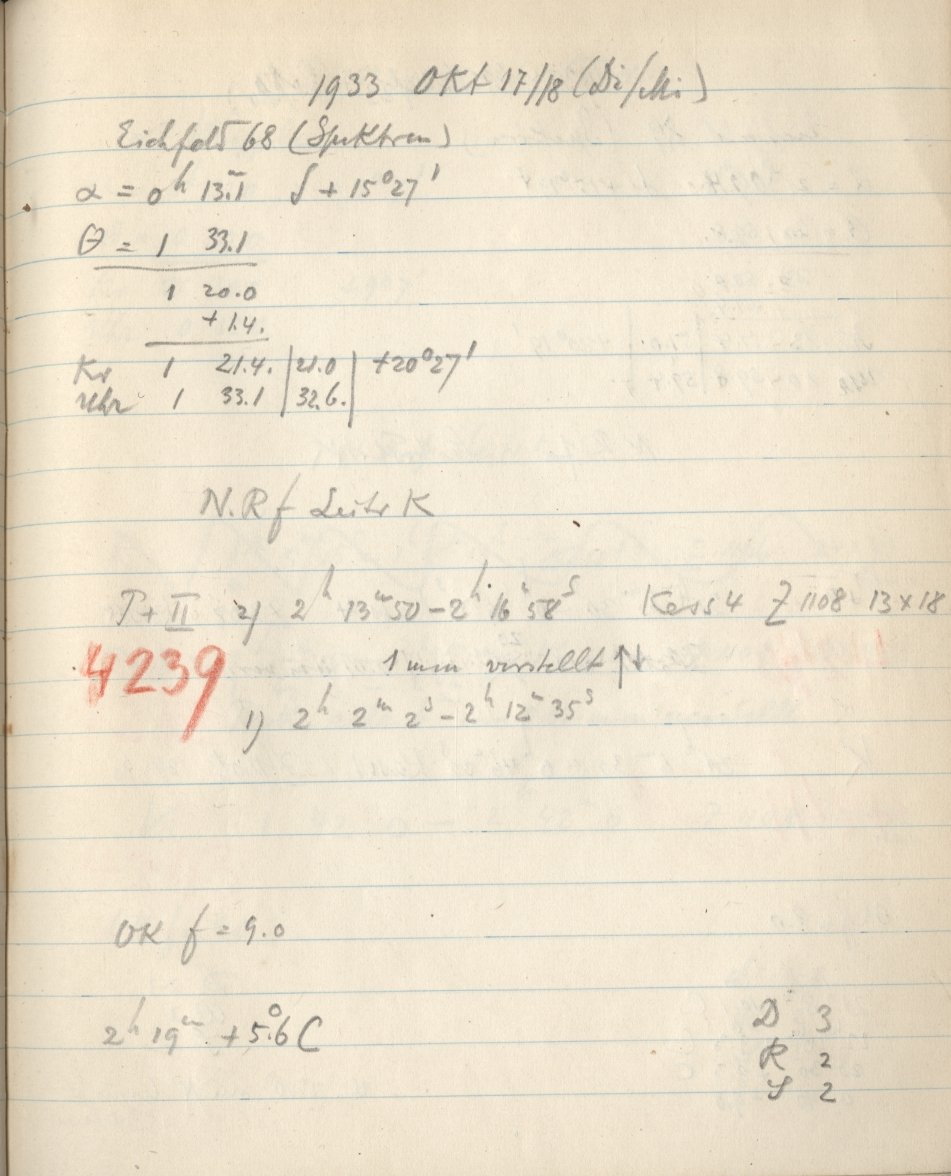 1933 Okt 17/18 (Di/Mi)
Eichfeld 68 (Spektren)
α = 0h 13m.1 δ + 15°27'
θ = 1 33.1
1 20.0
+ 1.4.
Kr 1 21.4. | 21.0 | +20°27'
Uhr 1 33.1 | 32.6. |
N.Rf Leitr K
T + II 2) 2h 13m 50 – 2h 16m 58s Kass 4 Z 1108 13 x 18
4239 1 mm verstellt ↑↓
1) 2h 2m 2s – 2h 12m 35s
OK f = 9.0
2h 19m + 5°.6 C
D 3
R 2
S 2